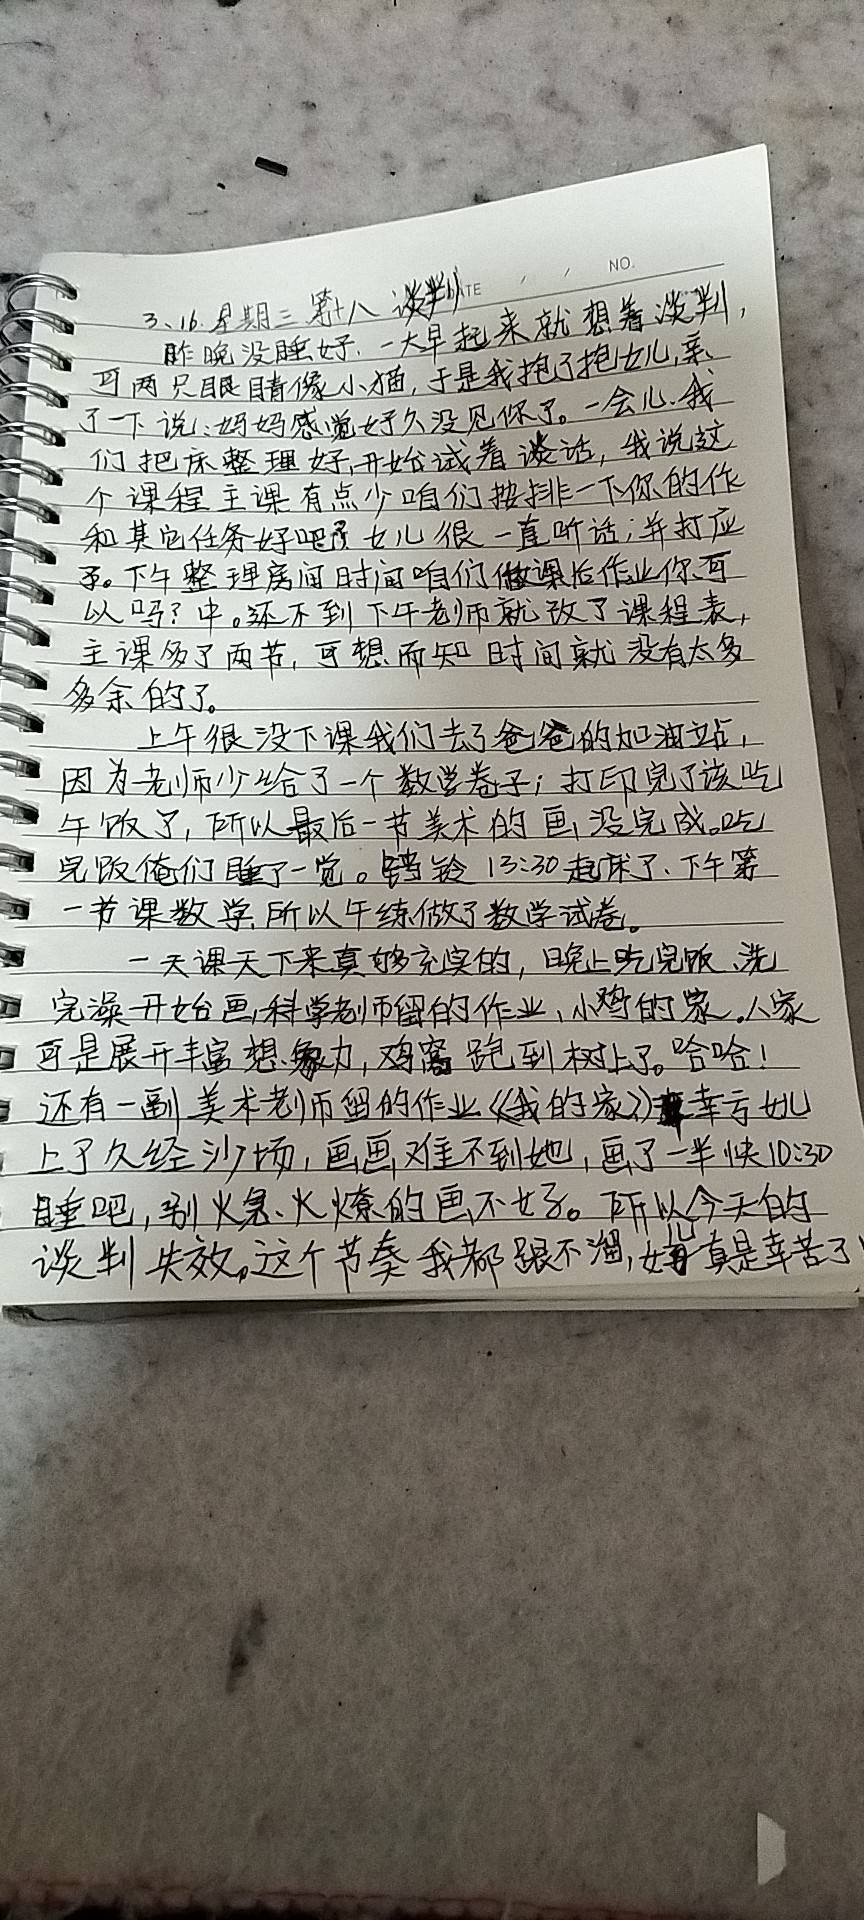 DATE / / NO.
3、16.星期三 第十八 谈判
昨晚没睡好.一大早起来就想着谈判，
可两只眼睛像小猫，于是我抱了抱女儿，亲
了一下说：妈妈感觉好久没见你了。一会儿、我
们把床整理好，开始试着谈话，我说这
个课程主课有点少咱们按排一下你的作
和其它任务好吧 女儿很一直听话；并打应
了。下午整理房间时间咱们做课后作业你可
以吗？中。还不到下午老师就改了课程表，
主课多了两节，可想而知时间就没有太多
多余的了。
上午很没下课我们去了爸爸的加油站，
因为老师少给了一个数学卷子；打印完了该吃
午饭了，所以最后一节美术的画没完成。吃
完饭俺们睡了一觉。铃 13:30起床了、下午第
一节课数学，所以午练做了数学试卷。
一天课天下来真够充实的，晚上吃完饭、洗
完澡开始画，科学老师留的作业、小鸡的家。人家
可是展开丰富想象力，鸡窝跑到树上了。哈哈！
还有一副美术老师留的作业《我的家》幸亏女儿
上了久经沙场，画画难不到她，画了一半快10:30
睡吧，别火急、火燎的画不好。所以今天的
谈判失效。这个节奏我都跟不溜，真是幸苦了！